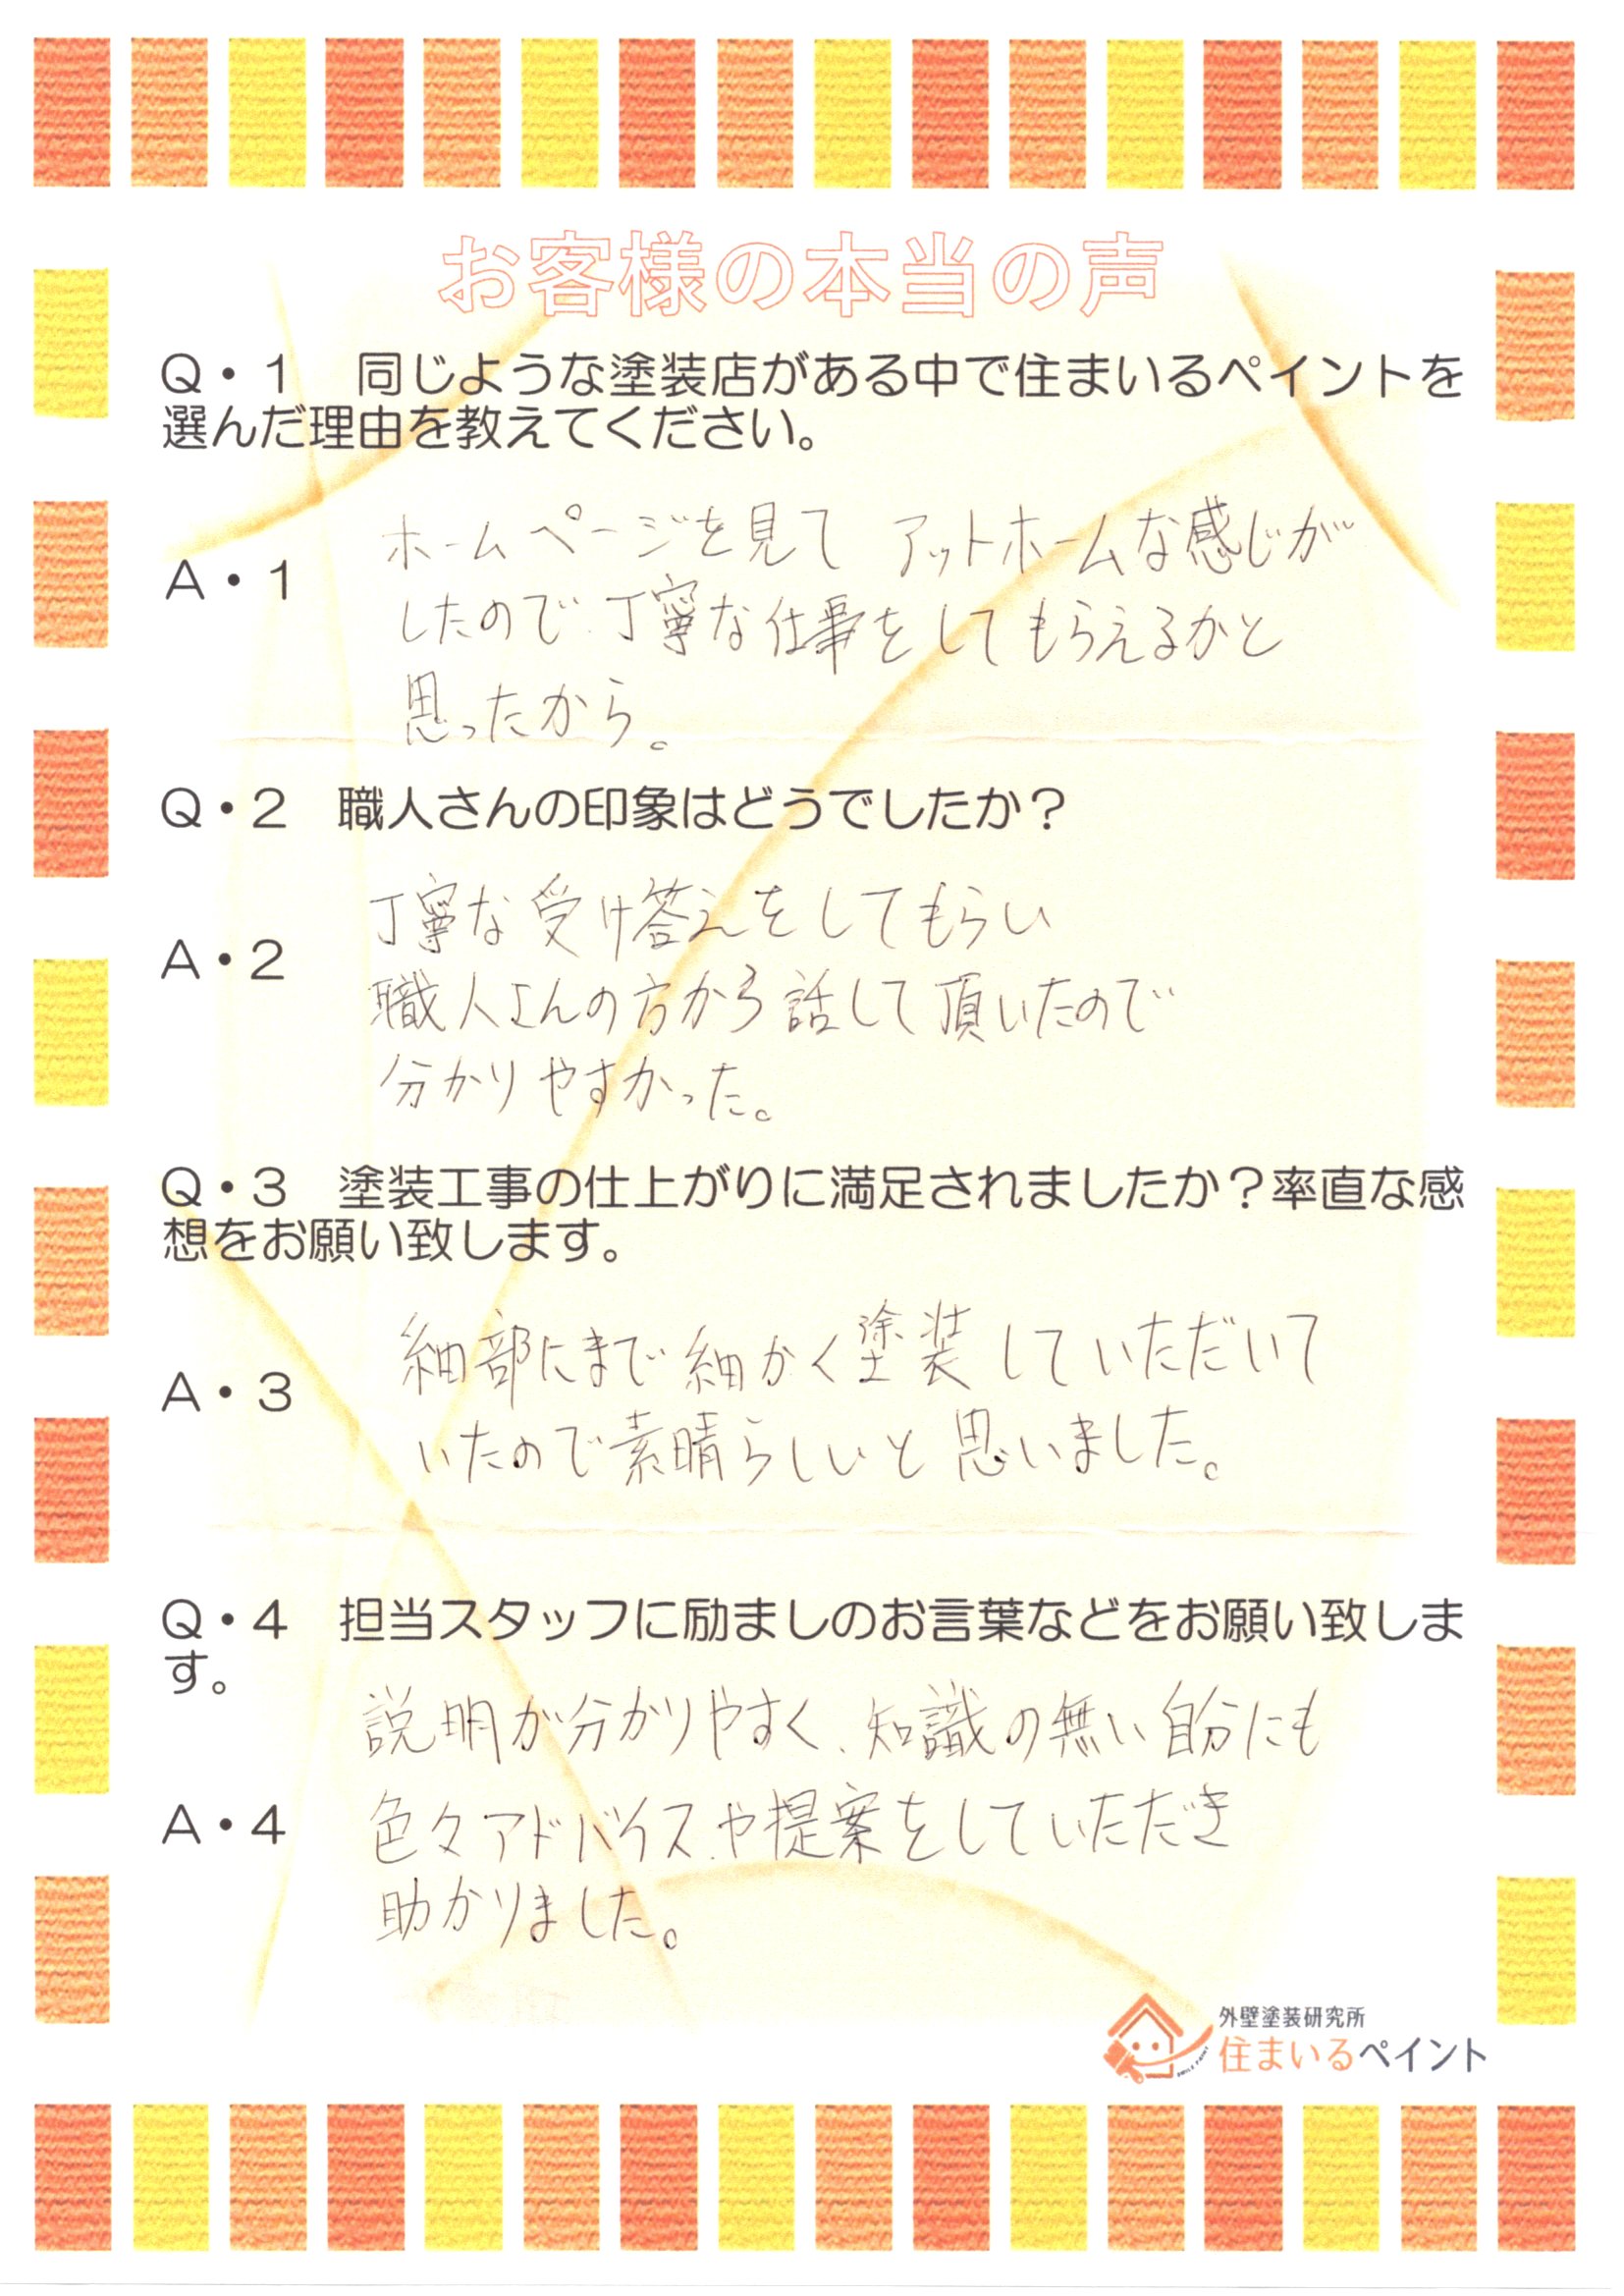 お客様の本当の声
Q・1　同じような塗装店がある中で住まいるペイントを
選んだ理由を教えてください。
A・1
ホームページを見て アットホームな感じが
したので、丁寧な仕事をしてもらえるかと
思ったから。
Q・2　職人さんの印象はどうでしたか？
A・2
丁寧な受け答えをしてもらい
職人さんの方から話して頂いたので
分かりやすかった。
Q・3　塗装工事の仕上がりに満足されましたか？率直な感
想をお願い致します。
A・3
細部にまで細かく塗装していただいて
いたので素晴らしいと思いました。
Q・4　担当スタッフに励ましのお言葉などをお願い致しま
す。
A・4
説明が分かりやすく、知識の無い自分にも
色々アドバイスや提案をしていただき
助かりました。
外壁塗装研究所
住まいるペイント